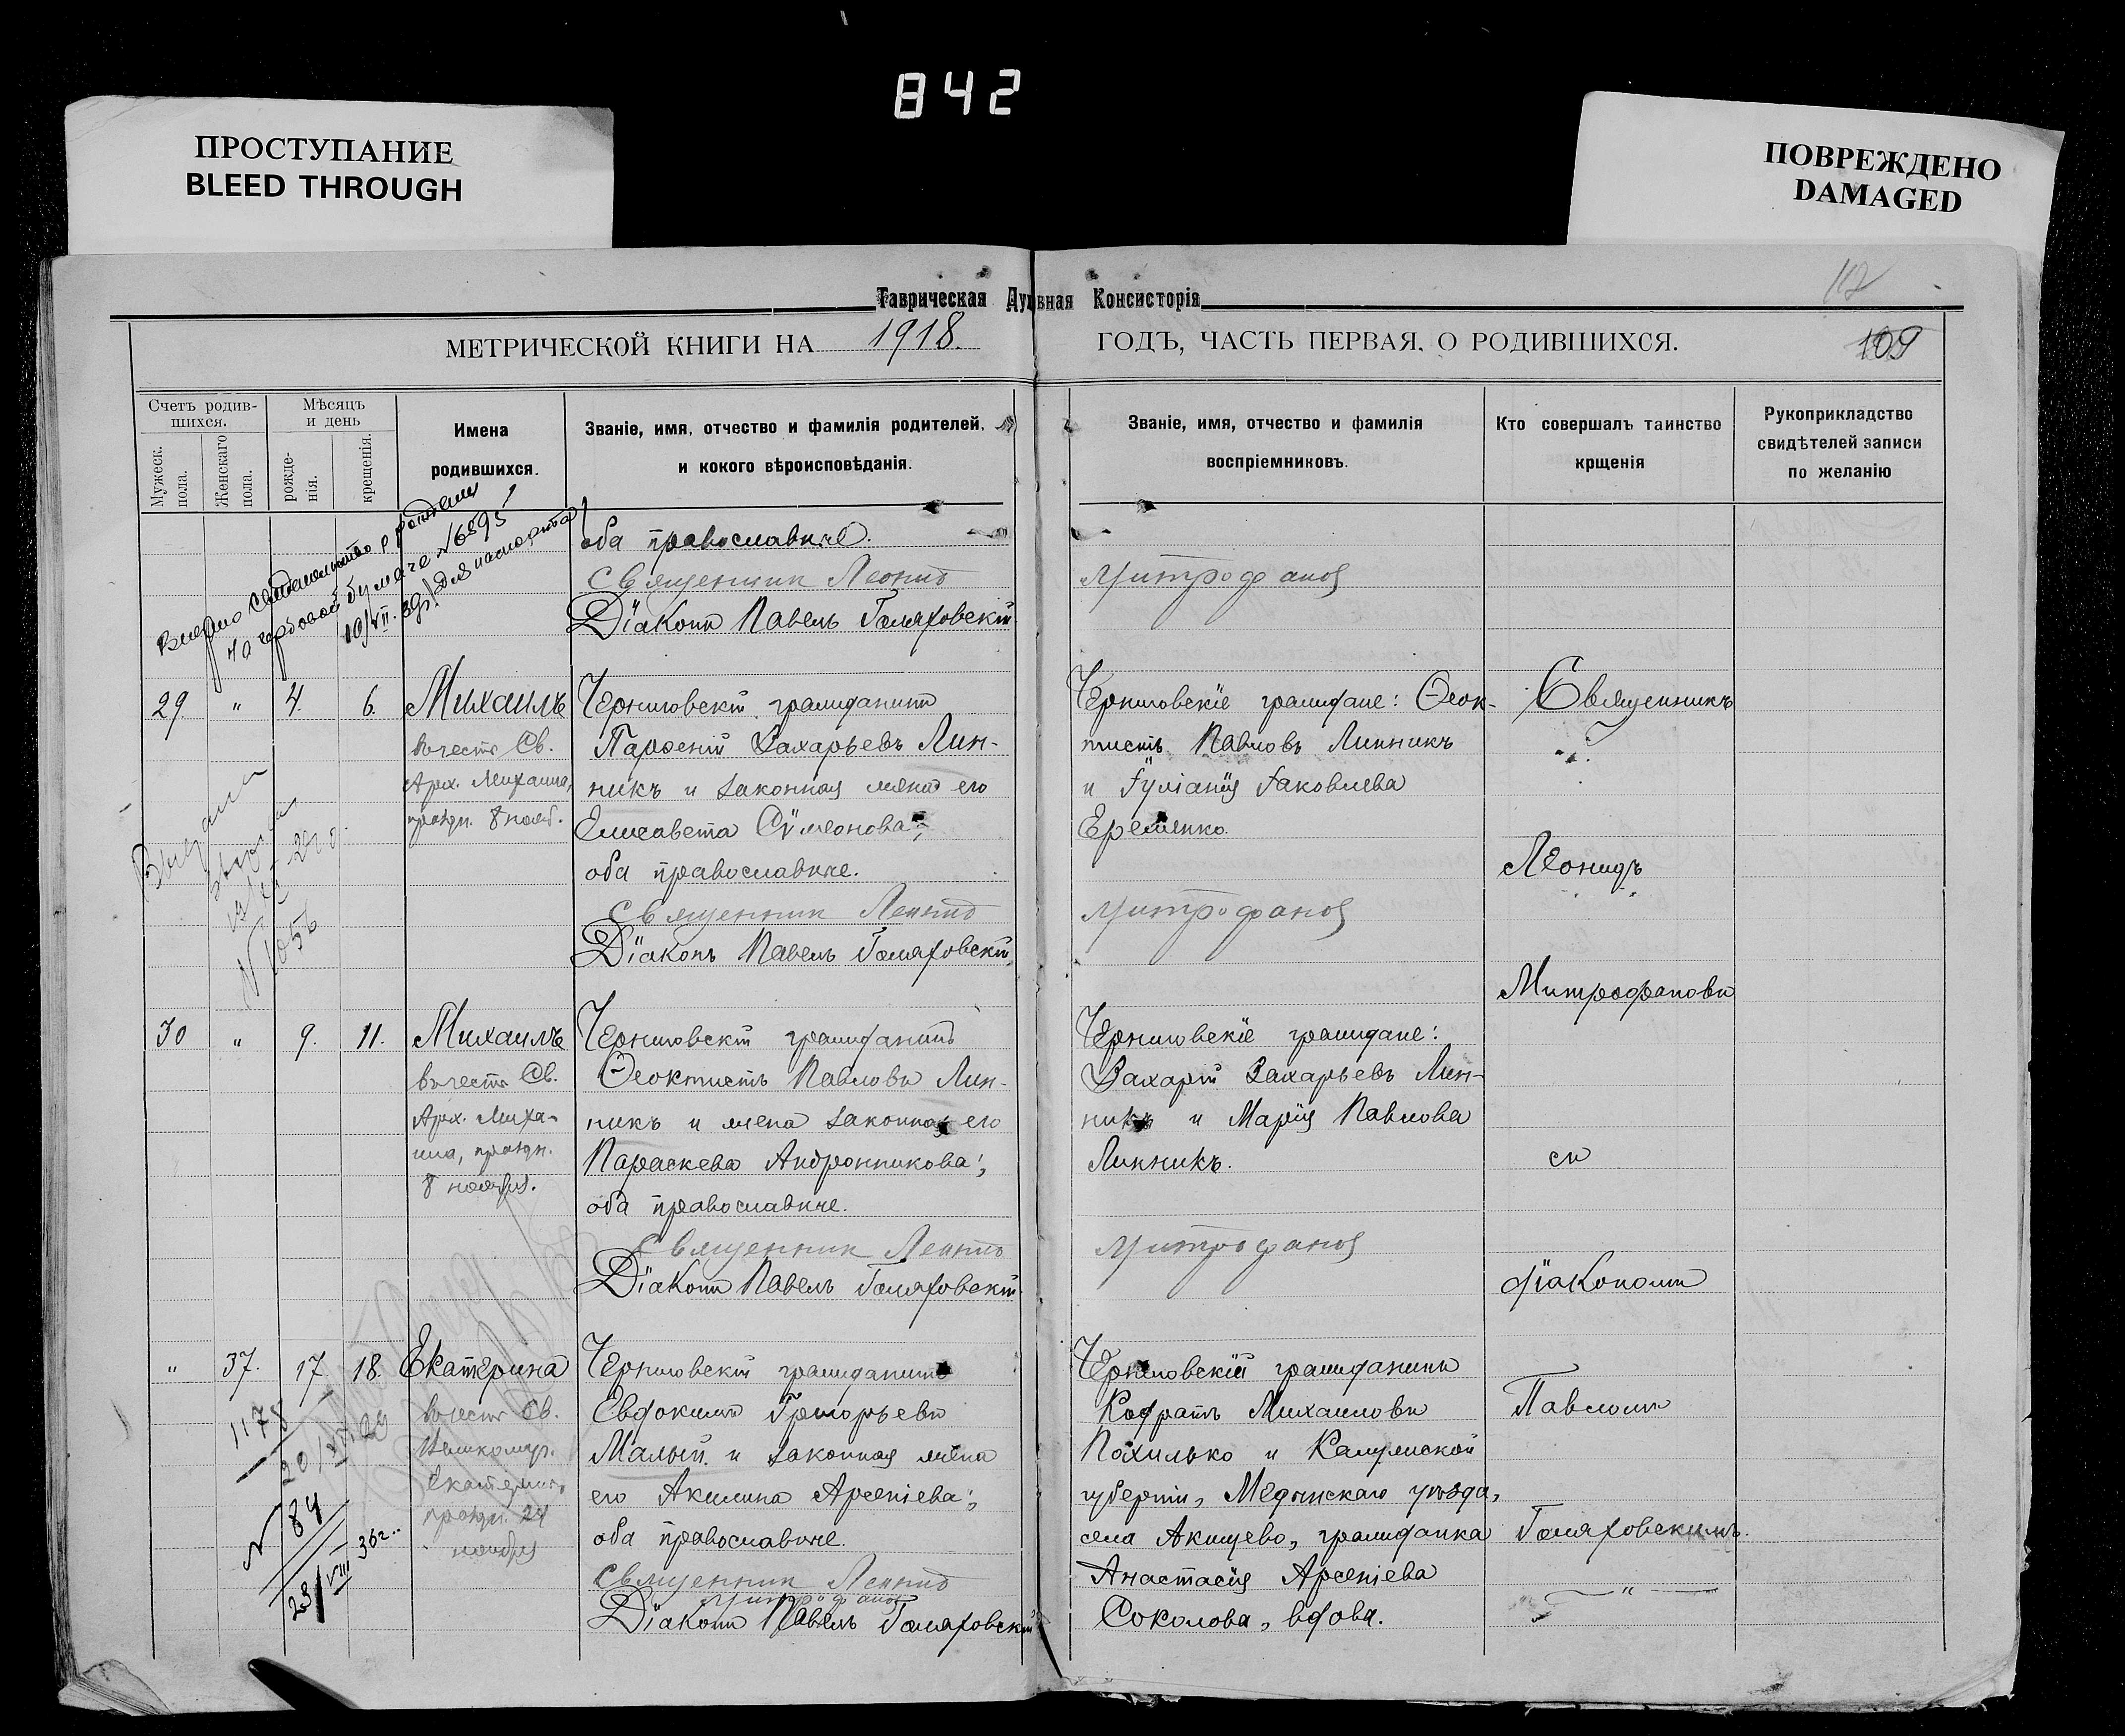 842
ПРОСТУПАНИЕ
BLEED THROUGH
ПОВРЕЖДЕНО
DAMAGED
112
Таврическая Духовная Консисторія
МЕТРИЧЕСКОЙ КНИГИ НА 1918. ГОДЪ, ЧАСТЬ ПЕРВАЯ, О РОДИВШИХСЯ.
109
Счетъ родив-
шихся.
Мужеск. пола.
Женскаго пола.
Мѣсяцъ
и день
рожде-
нія.
крещенія.
Имена
родившихся.
Званіе, имя, отчество и фамилія родителей,
и кокого вѣроисповѣданія.
Званіе, имя, отчество и фамилія
воспріемниковъ.
Кто совершалъ таинство
крщенія
Рукоприкладство
свидѣтелей записи
по желанію
свидетельство о рождении
на гербовой бумаге №6595
10/VII. 39г. для паспорта
оба православные.
Священник Леонид Митрофанов
Діаконъ Павелъ Голяховскій
29. " 4. 6. Михаилъ
въ честь Св.
Арх. Михаила,
праздн. 8 нояб.
Черниговскій гражданинъ
Парфеній Захарьевъ Лин-
никъ и законная жена его
Елисавета Сѵмеонова;
оба православные.
Священник Леонид Митрофанов
Діаконъ Павелъ Голяховскій
Черниговскіе граждане: Ѳеок-
тистъ Павловъ Линникъ
и Іуліанія Іаковлева
Еременко.
Священникъ
Леонидъ
Митрофановъ
№ 1056
30 " 9. 11. Михаилъ
въ честь Св.
Арх. Миха-
ила, праздн.
8 ноября.
Черниговскій гражданинъ
Ѳеоктистъ Павловъ Лин-
никъ и жена законная его
Параскева Андронникова;
оба православные.
Священник Леонид Митрофанов
Діаконъ Павелъ Голяховскій
Черниговскіе граждане:
Захарій Захарьевъ Лин-
никъ и Марія Павлова
Линникъ.
съ
діакономъ
" 37. 17. 18. Екатерина
въ честь Св.
Великомуч.
Екатерины,
праздн. 24
ноября
Черниговскій гражданинъ
Евдокимъ Григорьевъ
Малый и законная жена
его Акилина Арсеніева;
оба православные.
Священник Леонид
Митрофанов
Діаконъ Павелъ Голяховскій
Черниговскій гражданинъ
Кодратъ Михаиловъ
Похилько и Калужской
губерніи, Медынскаго уѣзда,
села Акищево, гражданка
Анастасія Арсеніева
Соколова, вдова.
Павломъ
Голяховскимъ.
1178
№ 84
23/VIII 36г.